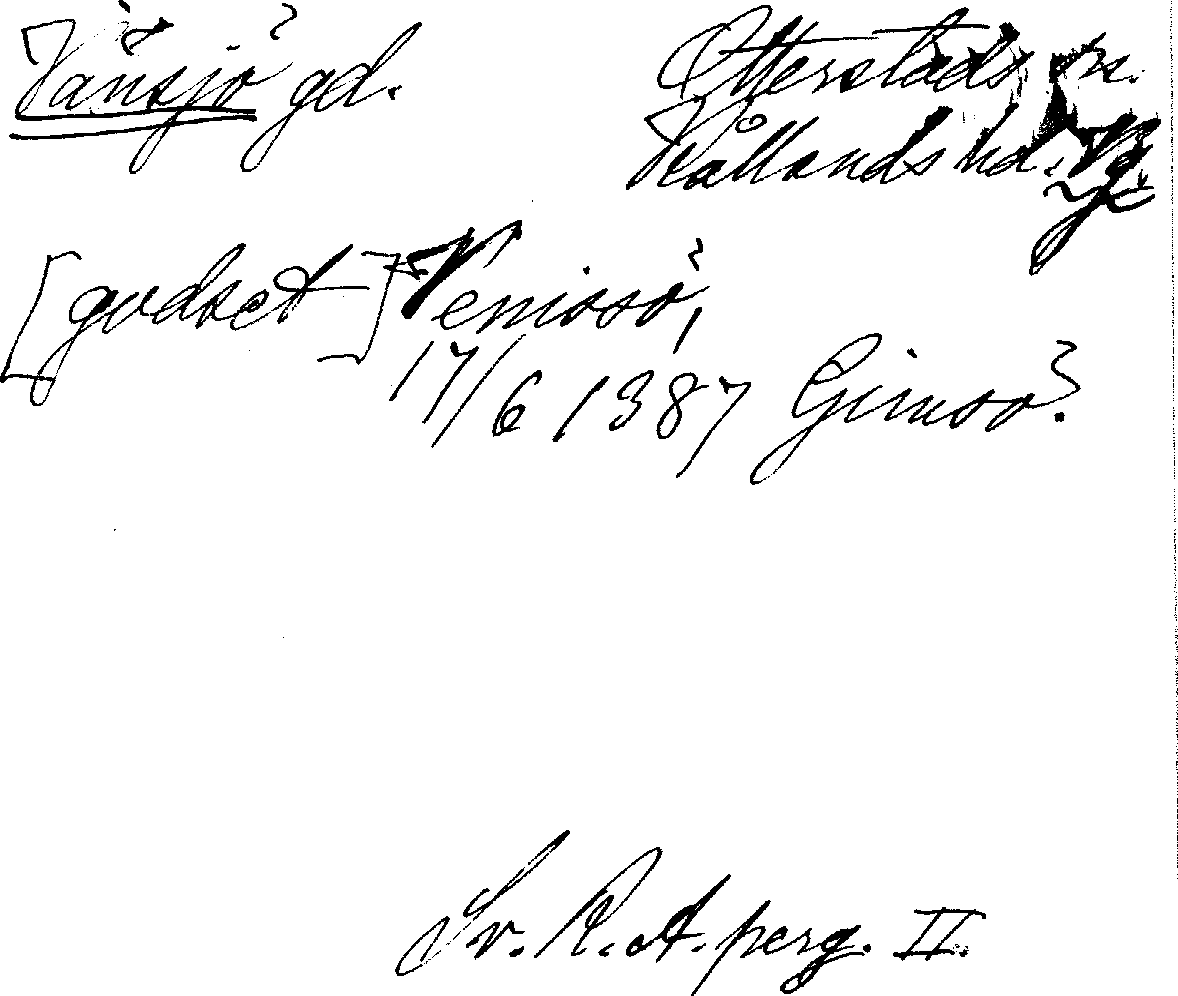 Vänsjö gd.
Otterstads sn.
Kållands hd. Vg.
[godset] Venissö,
17/6 1387 Gimsö.
Sv. R. A. perg. II.